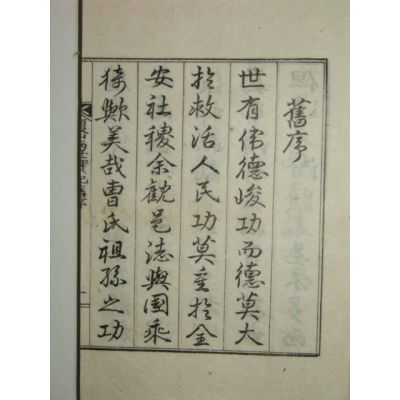 舊序
世有偉德峻功而德莫大
於救活人民功莫重於全
安社稷余觀邑誌與國乘
猗歟美哉曹氏祖孫之功